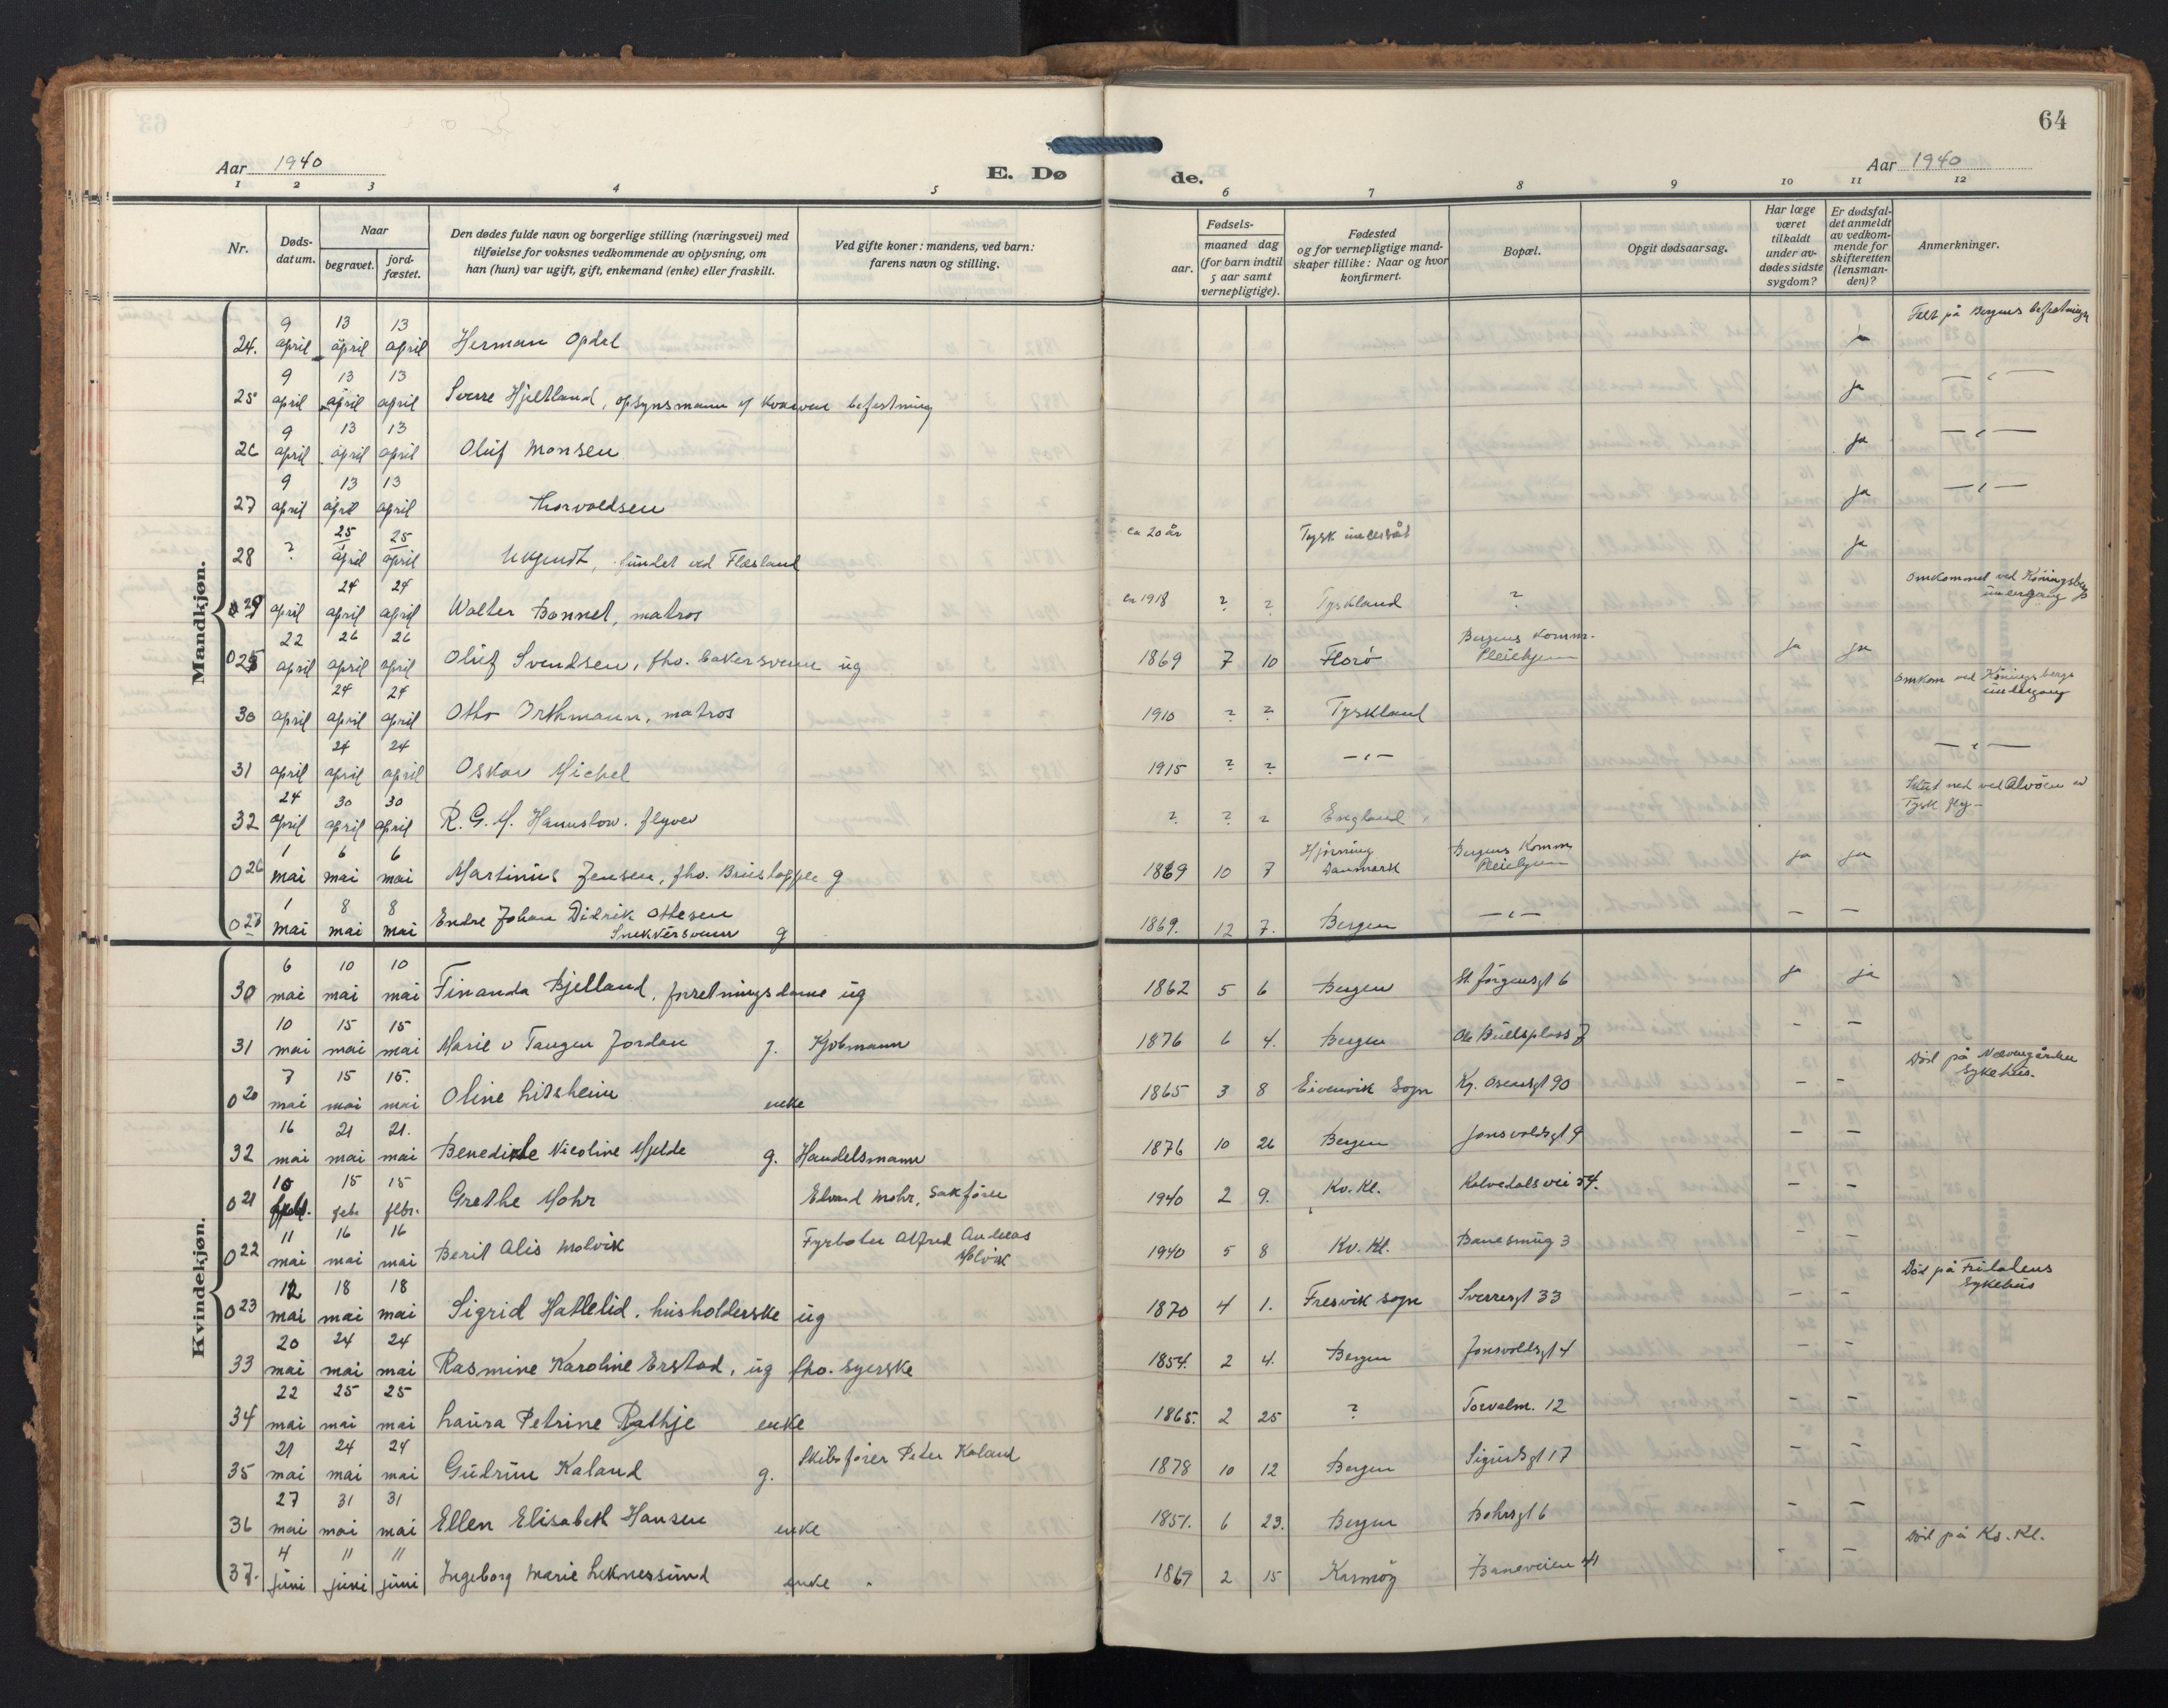 64
Aar 1940
E. Dø de.
Aar 1940
1 2 3 4 5 6 7 8 9 10 11 12
Nr.
Døds-datum.
Naar
begravet.
jord-fæstet.
Den dødes fulde navn og borgerlige stilling (næringsvei) med
tilføielse for voksnes vedkommende av oplysning, om
han (hun) var ugift, gift, enkemand (enke) eller fraskilt.
Ved gifte koner: mandens, ved barn:
farens navn og stilling.
Fødsels-
aar.
maaned dag
(for barn indtil
5 aar samt
vernepligtige).
Fødested
og for vernepligtige mand-
skaper tillike: Naar og hvor
konfirmert.
Bopæl.
Opgit dødsaarsag.
Har læge
været
tilkaldt
under av-
dødes sidste
sygdom?
Er dødsfal-
det anmeldt
av vedkom-
mende for
skifteretten
(lensman-
den)?
Anmerkninger.
Mandkjøn.
24. 9 april 13 april 13 april Herman Opdal ja Falt på Bergens befestninger
25 9 april 13 april 13 april Sverre Hjeltland, opsynsmann v/ Kvarven befestning ja — " —
26 9 april 13 april 13 april Oluf Monsen ja — " —
27 9 april 13 april 13 april Thorvaldsen ja — " —
28 ? 25 april 25 april Ukjendt, fundet ved Flesland ca 20 år Tysk undersåt ja
29 april 24 april 24 april Walter Bonnet, matros ca 1918 ? ? Tyskland ? Omkommet ved Königsbergs undergang
025 22 april 26 april 26 april Oluf Svendsen, fhv. bakersvenn ug 1869 7 10 Florø Bergens Komm. Pleiehjem ja ja
30 april 24 april 24 april Otto Orthmann, matros 1910 ? ? Tyskland Omkom ved Königsbergs undergang
31 april 24 april 24 april Oskar Michel 1915 ? ? — " — — " —
32 24 april 30 april 30 april R. G. M. flyver ? ? ? England Skut ned ved Alvøen av Tysk fly —
026 1 mai 6 mai 6 mai Martinius Jensen, fhv. g 1869 10 7 Hjørring Danmark Bergens Komm Pleiehjem ja ja
027 1 mai 8 mai 8 mai Endre Johan Didrik Ottesen Snekkersvenn g 1869. 12 7. Bergen — " — — —
Kvindekjøn.
30 6 mai 10 mai 10 mai Finanda Bjelland, forretningsdame ug 1862 5 6 Bergen St. Jørgensgt 6 ja ja
31 10 mai 15 mai 15 mai Marie v Tangen Jordan g. Kjøbmann 1876 6 4. Bergen Ole Bullsplass 7 — —
020 7 mai 15 mai 15. mai Oline Litsheim enke 1865 3 8 Eivenvik Sogn Kg. Oscarsgt 90 — — Død på Nevengården Sykehus.
32 16 mai 21 mai 21. mai Benedikte Nicoline Mjelde g. Handelsmann 1876 10 26 Bergen Jonsvoldsgt 9 — —
021 10 febr. 15 febr. 15 febr. Grethe Mohr Edvard Mohr, Sakfører 1940 2 9. Kv. Kl. Kalvedalsvei 54. — —
022 11 mai 16 mai 16 mai Berit Alis Molvik Fyrbøter Alfred Andreas Molvik 1940 5 8 Kv. Kl. Banesmug 3 — —
023 12 mai 18 mai 18 mai Sigrid Hatlelid, husholderske ug 1870 4 1. Fresvik sogn Sverresgt 33 — — Død på Fribolens Sykehus
33 20 mai 24 mai 24 mai Rasmine Karoline Erstad, ug fhv. syerske 1854. 2 4. Bergen Jonsvoldsgt 4 — —
34 22 mai 25 mai 25 mai Laura Petrine Rathje enke 1865. 2 25 ? Torvalm. 12 — —
35 21 mai 24 mai 24 mai Gudrun Kaland g. Skibsfører Peter Kaland 1878 10 12 Bergen Sigurdsgt 17 — —
36 27 mai 31 mai 31 mai Ellen Elisabeth Hansen enke 1851. 6 23. Bergen Bøhrsgt 6 — —
37. 4 juni 11 juni 11 juni Ingeborg Marie Leknessund enke 1869 2 15 Karmøy Baneveien 41 - — Død på Kv. Kl.